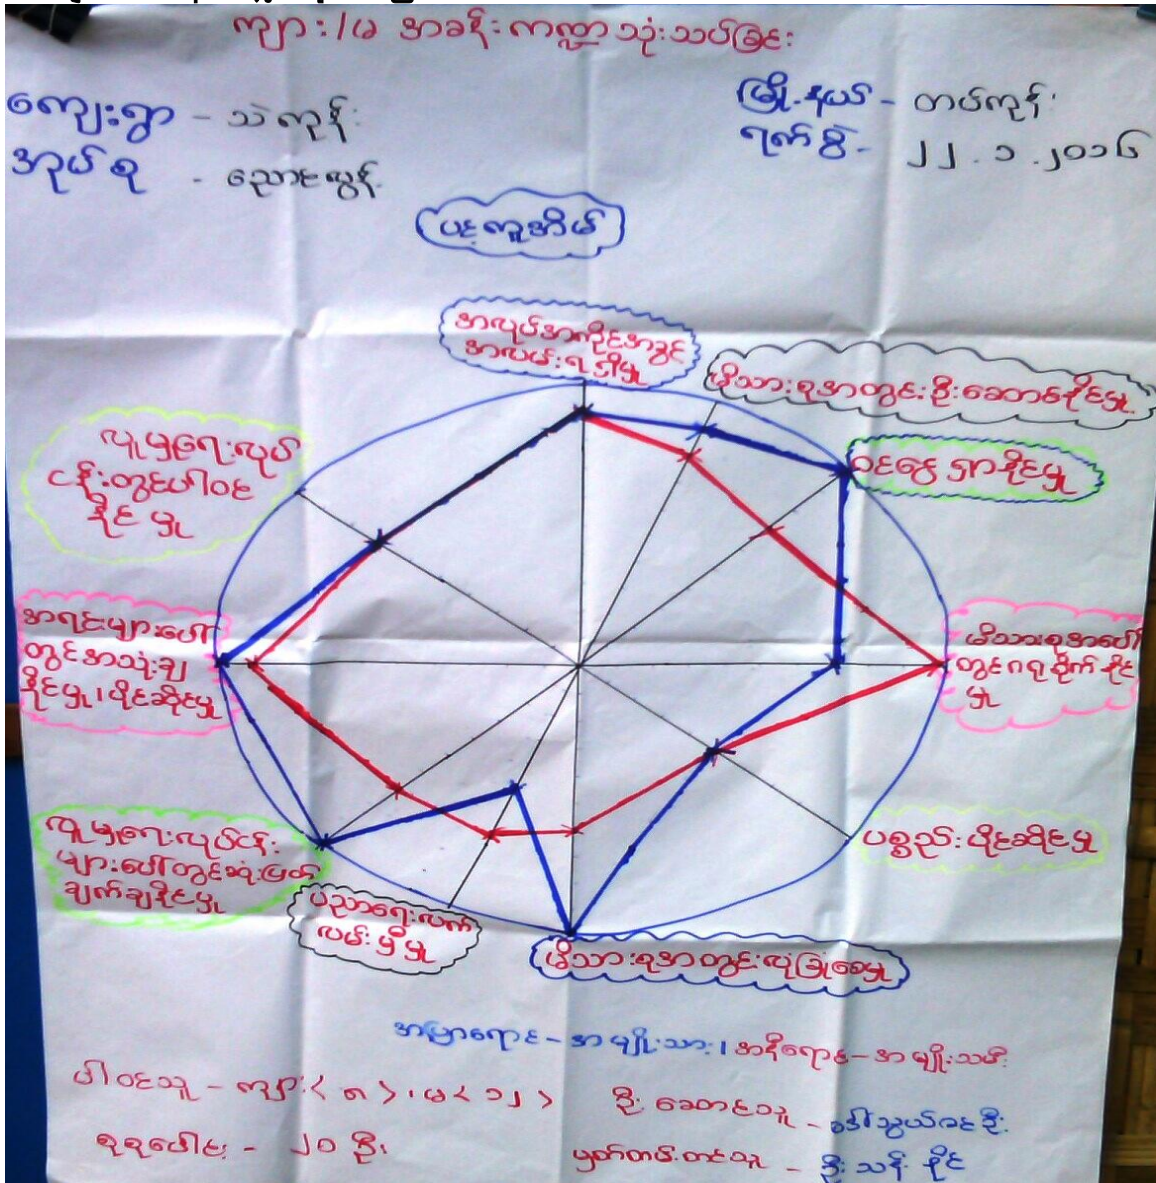 ကျား/မ အခန်းကဏ္ဍသုံးသပ်ခြင်း
ကျေးရွာ - သဲကုန်း
အုပ်စု - ညောင်လွန့်
မြို့နယ် - တပ်ကုန်း
ရက်စွဲ - ၂၂.၁.၂၀၁၆
ပင့်ကူအိမ်
အလုပ်အကိုင်အခွင့်
အလမ်းရရှိမှု
မိသားစုအတွင်းဦးဆောင်နိုင်မှု
ဝင်ငွေရှာနိုင်မှု
မိသားစုအပေါ်
တွင်ဂရုစိုက်နိုင်
မှု
ပစ္စည်းပိုင်ဆိုင်မှု
မိသားစုအတွင်းလုံခြုံစေမှု
ပညာရေးလက်
လှမ်းမှီမှု
လူမှုရေးလုပ်ငန်း
များပေါ်တွင်ဆုံးဖြတ်
ချက်ချနိုင်မှု
အရင်းများပေါ်
တွင်အသုံးချ
နိုင်မှု၊ပိုင်ဆိုင်မှု
လူမှုရေးလုပ်
ငန်းတွင်ပါဝင်
နိုင်မှု
အပြာရောင် - အမျိုးသား၊ အနီရောင် - အမျိုးသမီး
ပါဝင်သူ - ကျား <၈>၊ မ <၁၂>
စုစုပေါင်း - ၂၀ ဦး
ဦးဆောင်သူ - ဒေါ်သွယ်ဇင်ဦး
မှတ်တမ်းတင်သူ - ဦးသန်းနိုင်